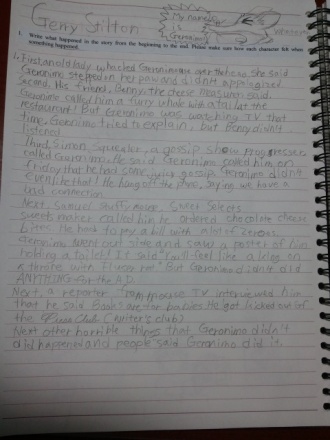 Gerry Stilton
My name
is
Geronimo
1. Write what happened in the story from the beginning to the end. Please make sure how each character felt when something happened.
First an old lady whacked Geronimo over the head. She said
Geronimo stepped on her paw and didn't appologised
second, His friend, Benny the cheese measurer said.
Geronimo called him a furry whale with a tail at the
restaurant! But Geronimo was watching TV that
time. Geronimo tried to explain, but Benny didn't
listened
Third, Simon, squealer, a gossip show
called Geronimo. He said Geronimo called him on
Friday that he had some juicy gossip. Geronimo didn't
even like that! He hung off the phone, saying we have a
bad connection
Next Samuel, Sweet Selects
sweets maker called him he ordered chocolate cheese
bites. He had to pay a bill with alot of zeros.
Geronimo went out side and saw a poster of him
holding a toilet! It said "you'll feel like a king on
a throne with Flush not" But Geronimo didn't did
ANYTHING for the A.D
Next a reporter from TV interviewed him
that he said Books are for babies He got kicked out of
the Club (writer's club)
Next other horrible things that Geronimo didn't
did happened and people said Geronimo did it.